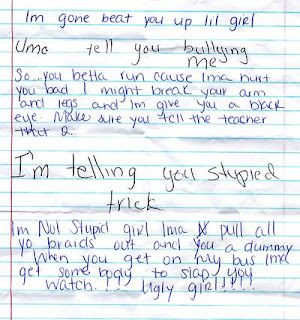 Im gone beat you up lil girl
Uma tell you bullying
me
So..you betta run cause Ima hurt
you bad I might break your arm
and legs and Im give you a black
eye. Make sure you tell the teacher
that 2.
I'm telling you stupied
trick
im Not Stupid girl Ima pull all
yo braids out and you a dummy
When you get on my bus Ima
get some body to slap you
watch... Ugly girl!!!!